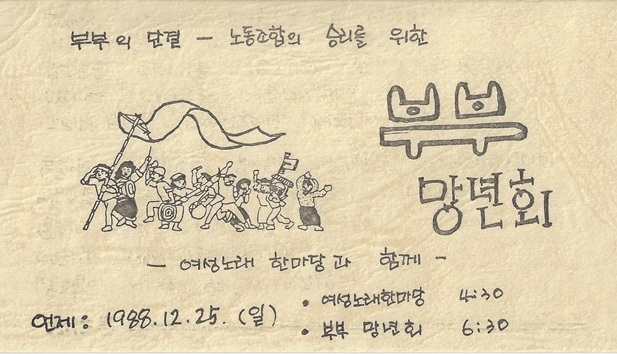 부부의 단결 - 노동조합의 승리를 위한
부부
망년회
- 여성노래 한마당과 함께 -
언제: 1988.12.25.(일)
• 여성노래한마당 4:30
• 부부 망년회 6:30